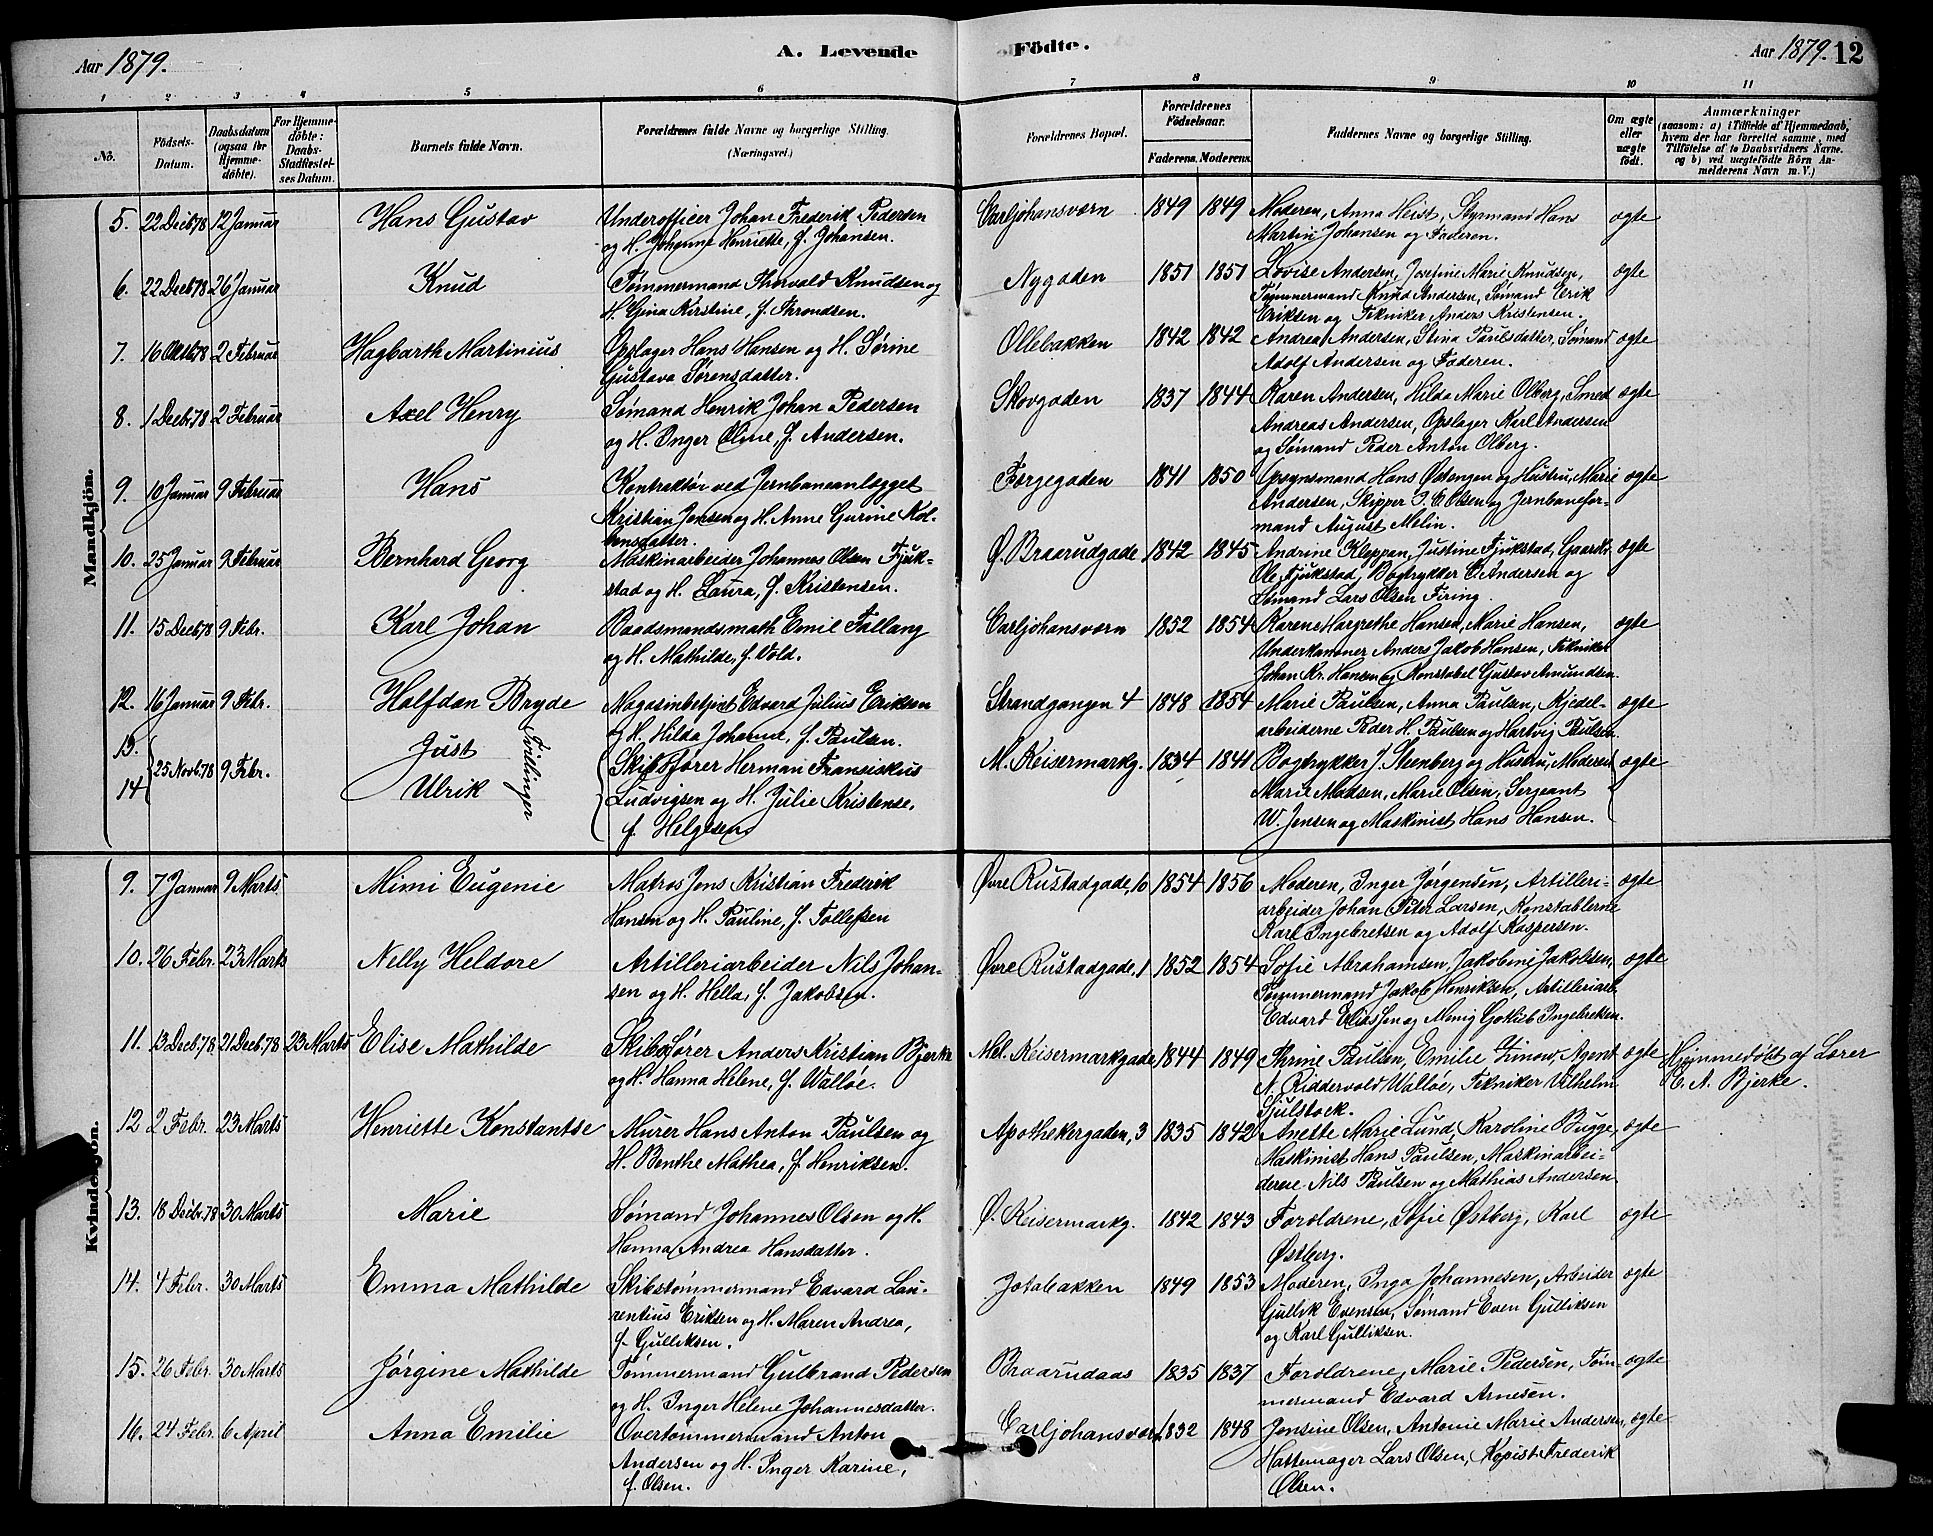 Aar 1879.
A. Levende Födte.
Aar 1879. 12
1 2 3 4 5 6 7 8 9 10 11
No.
Födsels-Datum.
Daabsdatum (ogsaa for Hjemmedöbte).
For Hjemmedöbte: Daabs-Stadfæstelses Datum.
Barnets fulde Navn.
Forældrenes fulde Navne og borgerlige Stilling. (Næringsvei.)
Forældrenes Bopæl.
Forældrenes Födselsaar.
Faderens. Moderens.
Faddernes Navne og borgerlige Stilling.
Om ægte eller uægte födt.
Anmærkninger
(saasom: a) i Tilfælde af Hjemmedaab, hvem der har forrettet samme, med Tilföielse af to Daabsvidners Navne. og b) ved uægtefödte Börn Anmelderens Navn m. V.)
Mandkjön.
5. 22 Decb 78 12 Januar Hans Gustav Underofficer Johan Frederik Pedersen Carljohansværn 1849 1849 Moderen, Anna Heist, Styrmand Hans ægte
og H. Johanne Henriette, f. Johansen. Martin Johansen og Faderen.
6. 22 Decb 78 26 Januar Knud Tømmermand Thorvald Knudsen og Nygaden 1851 1851 Lovise Andersen, Josefine Marie Knudsen, ægte
H. Gina Kirstine, f. Throndsen. Tømmermand Knud Andersen, Sømand Erik
Eriksen og Tekniker Anders Kristensen.
7. 16 Oktb 78 2 Februar Hagbarth Martinius Opslager Hans Hansen og H. Sørine Ollebakken 1842 1842 Andrea Andersen, Stina Paulsdatter, Sømand ægte
Gustava Sørensdatter. Adolf Andersen og Faderen.
8. 1 Decb 78 2 Februar Axel Henry Sømand Henrik Johan Pedersen Skovgaden 1837 1844 Karen Andersen, Hilda Marie Olberg, Smed ægte
og H. Inger Oline, f. Andersen. Andreas Andersen, Opslager Karl Andersen
og Sømand Peder Anton Olberg.
9. 10 Januar 9 Februar Hans Kontraktør ved Jernbaneanlægget Færgegaden 1841 1850 Opsynsmand Hans Østengen og Hustru, Marie ægte
Kristian Jensen og H. Anne Gurine Kol- Andersen, Skipper J. C. Olsen og Jernbanefor-
bensdatter. mand August Melin.
10. 25 Januar 9 Februar Bernhard Georg Maskinarbeider Johannes Olsen Fjuk- Ø. Braarudgade 1842 1845 Andrine Kleppan, Justine Fjukstad, Gaardbr. ægte
stad og H. Laura, f. Kristensen. Ole Fjukstad, Bogtrykker C. Andersen og
Sømand Lars Olsen Firing.
11. 15 Decb 78 9 Febr. Karl Johan Baadsmandsmath Emil Fallang Carljohansværn 1852 1854 Karen Margrethe Hansen, Marie Hansen, ægte
og H. Mathilde, f. Vold. Underkanoner Anders Jakob Hansen, Tekniker
Johan Kr. Hansen og Konstabel Gustav Amundsen.
12. 16 Januar 9 Febr. Halfdan Bryde Magasinbetjent Edvard Julius Eriksen Strandgangen 4 1848 1854 Marie Paulsen, Anna Paulsen, Kjedel- ægte
og H. Hilda Johanne, f. Paulsen. arbeiderne Peder H. Paulsen og Hartvig Paulsen.
13. 14 25 Novb 78 9 Febr. Just Ulrik Tvillinger Skibsfører Herman Fransiskus M. Keisermarkg. 1834 1841 Bogtrykker J. Steenberg og Hustru, Moderen ægte
Ludvigsen og H. Julie Kristense, Marie Madsen, Marie Olsen, Sergeant
f. Helgesen W. Jensen og Maskinist Hans Hansen.
Kvindekjön.
9. 7 Januar 9 Marts Mimi Eugenie Matros Jens Kristian Frederik Øvre Rustadgade, 10 1854 1856 Moderen, Inger Jørgensen, Artilleri- ægte
Hansen og H. Pauline, f. Tollefsen arbeider Johan Peter Larsen, Konstablerne
Karl Ingebretsen og Adolf Kaspersen.
10. 26 Febr. 23 Marts Nelly Heldore Artilleriarbeider Nils Johan- Øvre Rustadgade, 1 1852 1854 Sofie Abrahamsen, Jakobine Jakobsen, ægte
sen og H. Hella, f. Jakobsen. Tømmermand Jakob Henriksen, Artilleriarb.
Edvard Eliassen og Menig Gotlieb Ingebretsen.
11. 13 Decb 78 21 Decb 78 23 Marts Elise Mathilde Skibsfører Anders Kristian Bjerke Mel. Keisermarkgade 1844 1849 Thrine Paulsen, Emilie Zinow, Agent ægte Hjemmedøbt af Lærer
og H. Hanna Helene, f. Walløe. N. Riddervold Walløe, Tekniker Vilhelm C. A. Bjerke.
Gjulstock.
12 2 Febr. 23 Marts Henriette Konstantse Murer Hans Anton Paulsen og Apothekergaden, 3 1835 1842 Anette Marie Lund, Karoline Bugge, ægte
H. Benthe Mathea, f. Henriksen. Maskinist Hans Paulsen, Maskinarbei-
derne Nils Paulsen og Mathias Andersen
13. 18 Decbr. 78 30 Marts Marie Sømand Johannes Olsen og H. Ø. Keisermarkg. 1842 1843 Forældrene, Sofie Østberg, Karl ægte
Hanna Andrea Hansdatter. Østberg.
14. 4 Febr. 30 Marts Emma Mathilde Skibstømmermand Edvard Lau- Jotabakken 1849 1853 Moderen, Inga Johannesen, Arbeider ægte
rentius Eriksen og H. Maren Andrea, Gullik Evensen, Sømand Even Gulliksen
f. Gulliksen. og Karl Gulliksen.
15. 26 Febr. 30 Marts Jørgine Mathilde Tømmermand Gulbrand Pedersen Braarudaas 1835 1837 Forældrene, Marie Pedersen, Tøm- ægte
og H. Inger Helene Johannesdatter. mermand Edvard Arnesen.
16. 24 Febr. 6 April Anna Emilie Overtømmermand Anton Carljohansværn 1832 1848 Jensine Olsen, Antonie Marie Andersen, ægte
Andersen og H. Inger Karine, Hattemager Lars Olsen, Kopist Frederik
f. Olsen. Olsen.